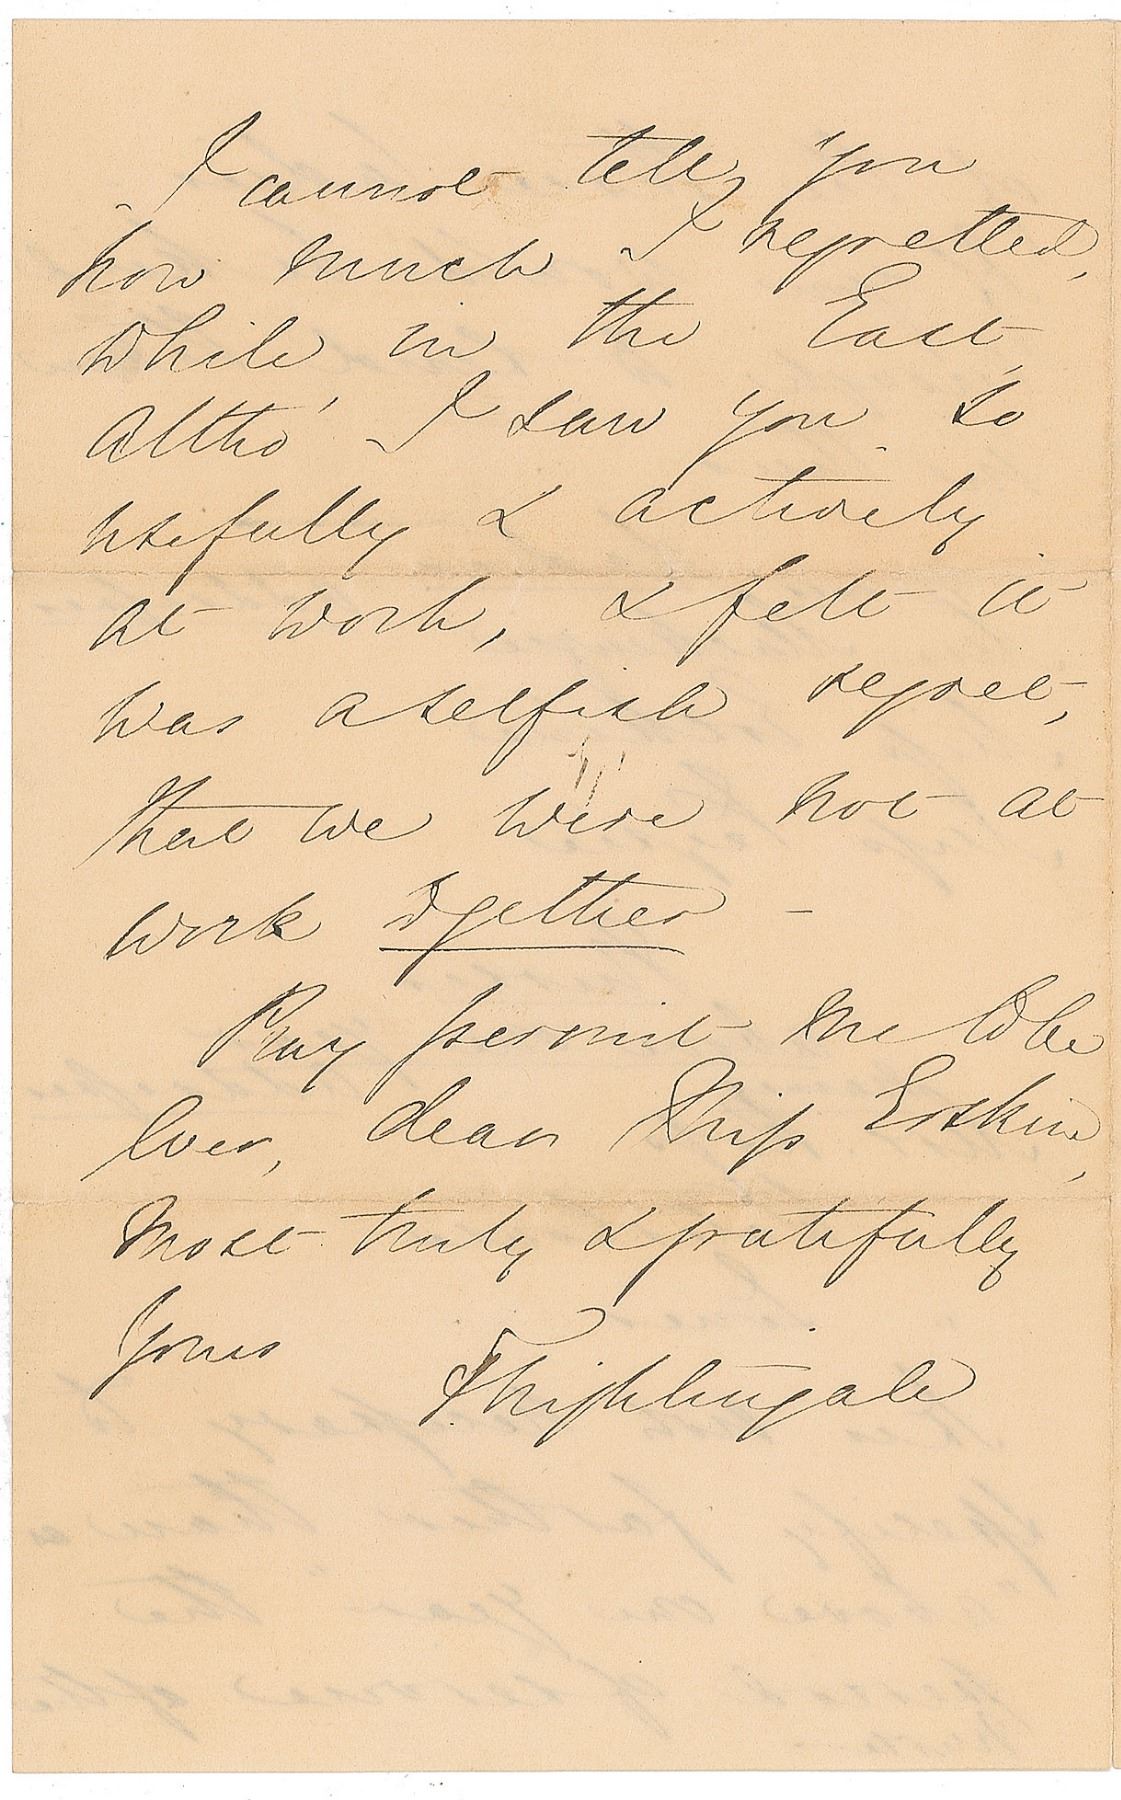 I cannot tell you
how much I regretted,
while in the East,
altho' I saw you so
usefully & actively
at work, & felt it
was a selfish regret,
that we were not at
work together -
Pray permit me to be
ever, dear Miss Erskine,
most truly & gratefully
yours
F Nightingale